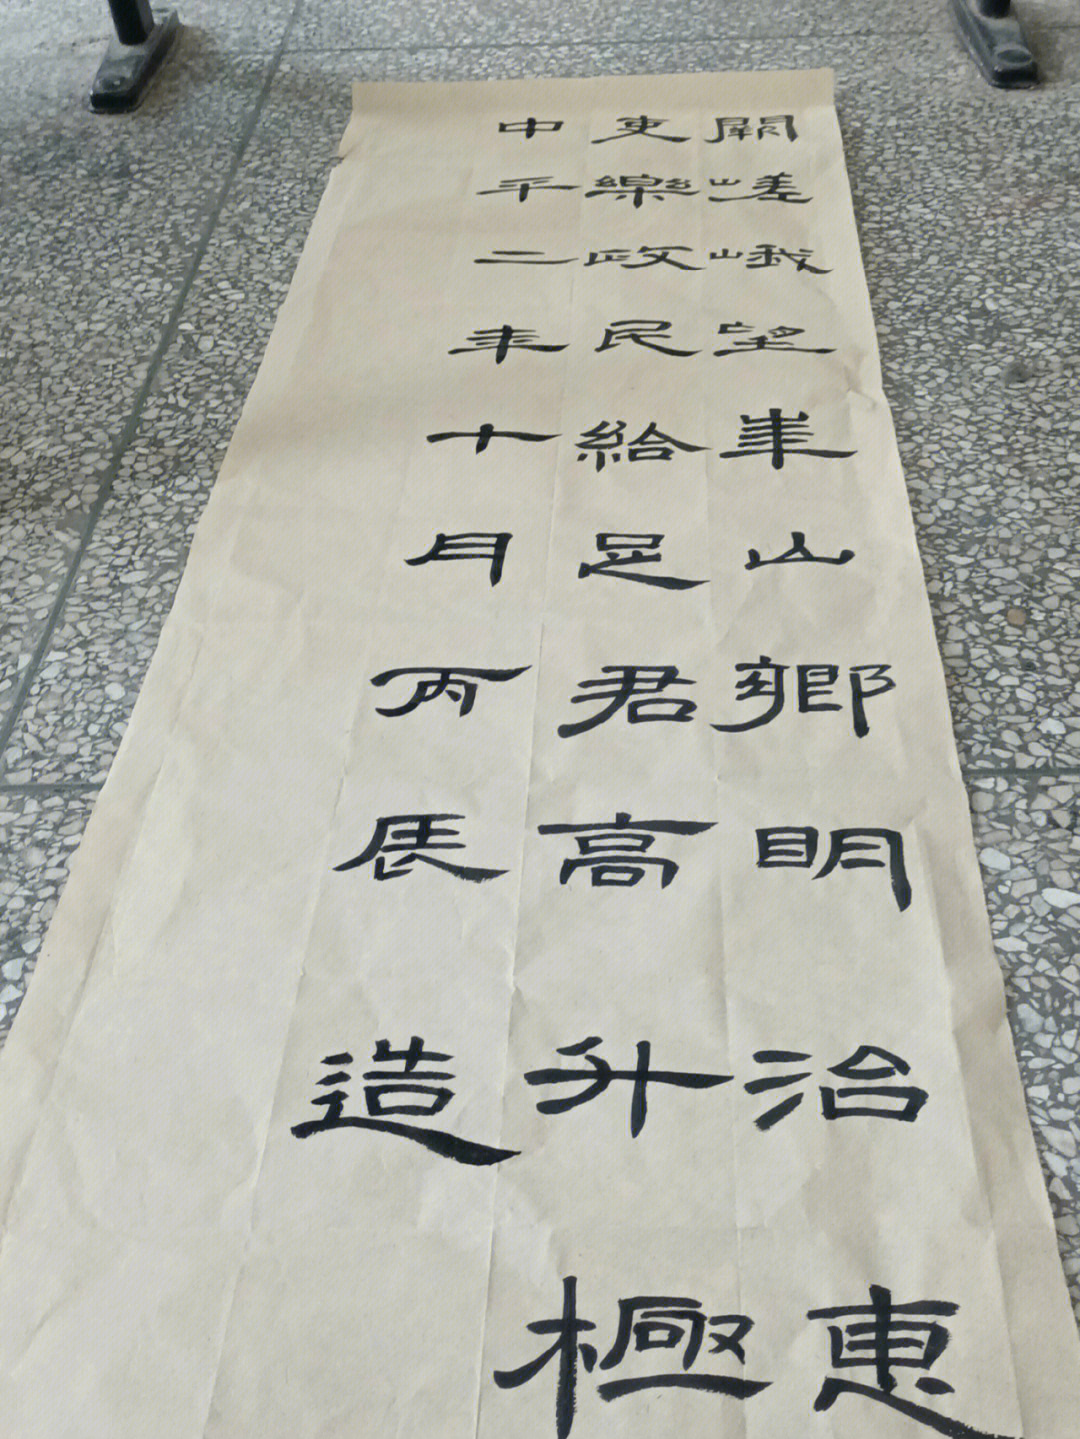 闕嵯峨望崋山鄉明治惠
吏樂政民給足君高升極
中平二年十月丙辰造